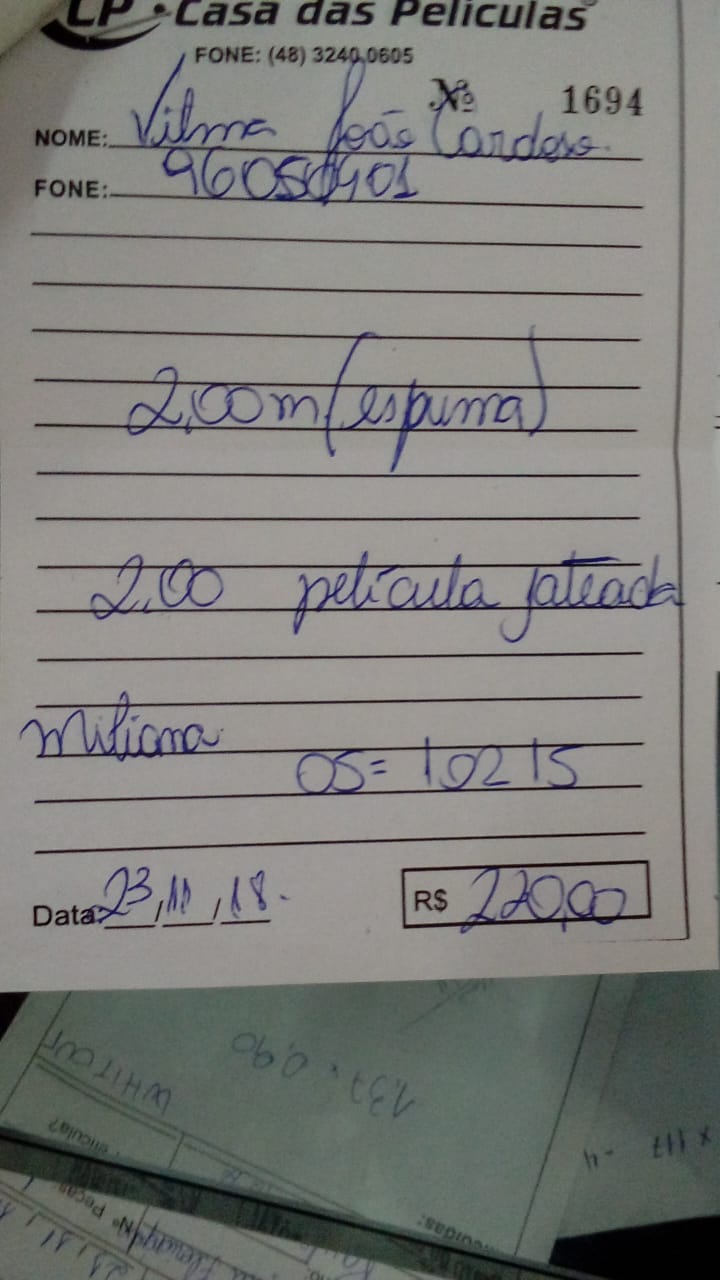 CP • Casa das Películas
FONE: (48) 3240.0605
Nº 1694
NOME: Vilma João Cardoso.
FONE: 96050401
2,00m (espuma)
2,00 película jateada
Miliana
OS= 10215
Data: 23/11/18.
R$ 220,00
1,37 x 0,90
WHITOUT
x 117
Nº Peças